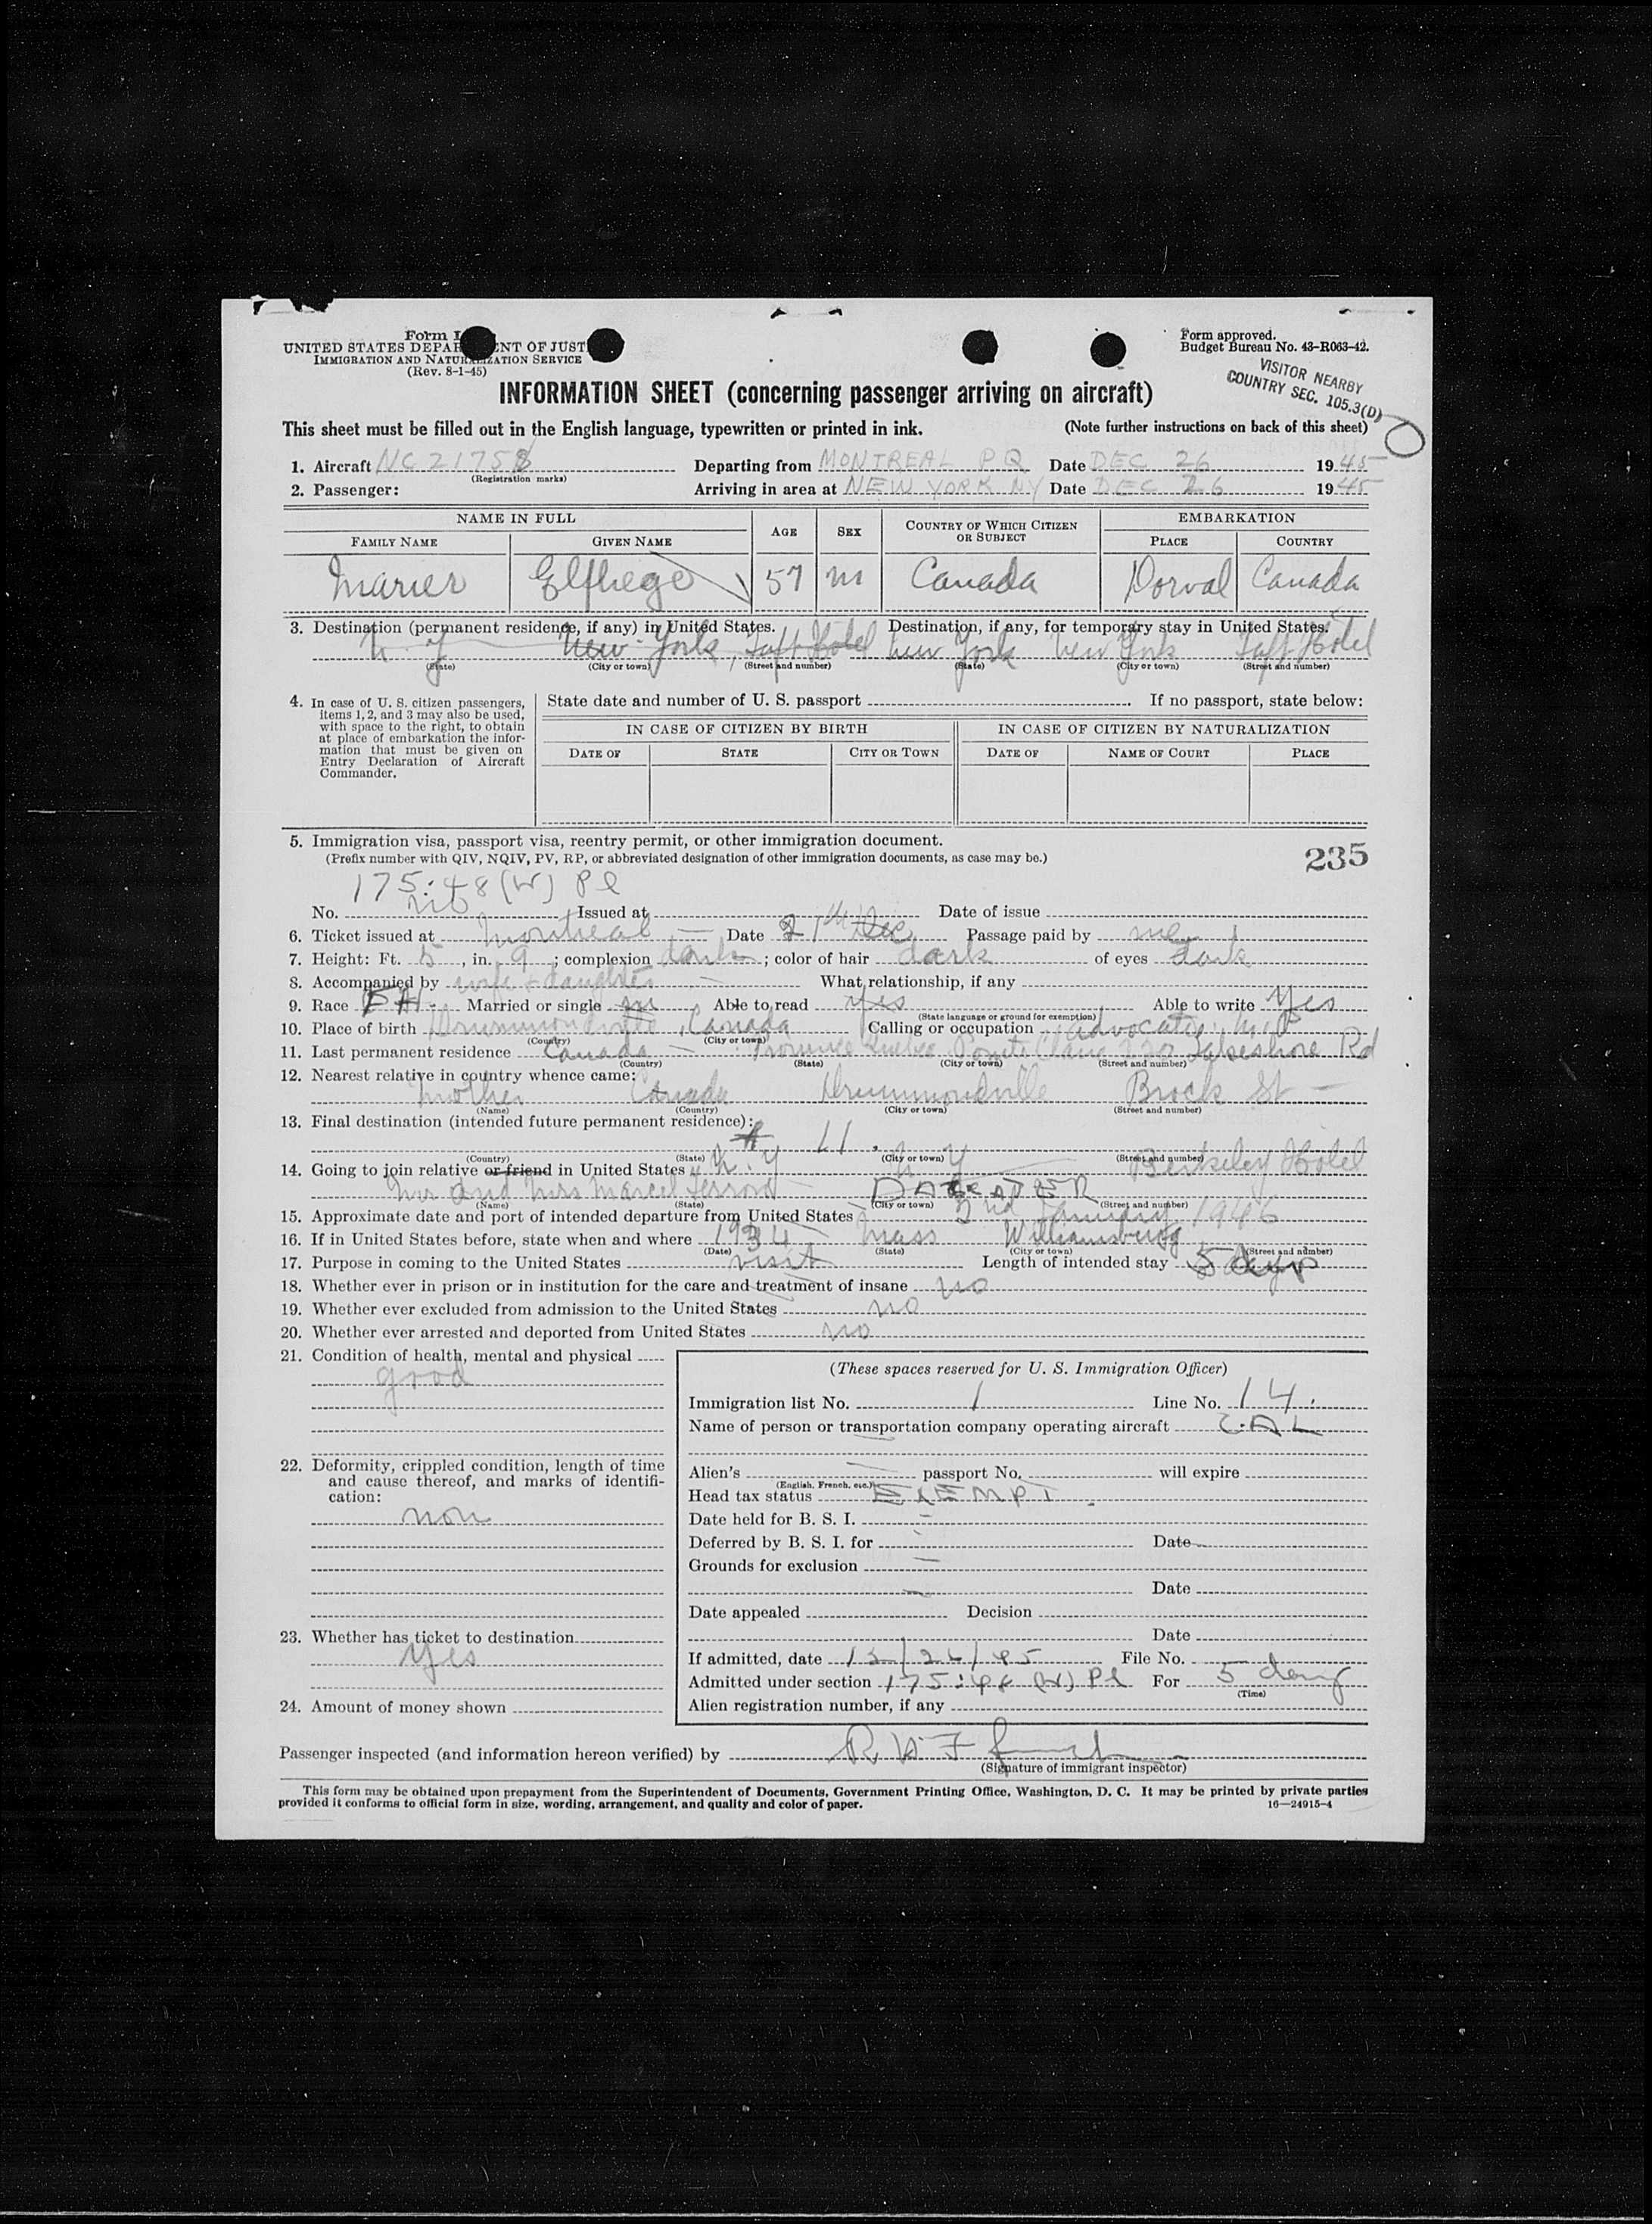 Form I
UNITED STATES DEPAR ENT OF JUST
IMMIGRATION AND NATURALIZATION SERVICE
(Rev. 8-1-45)
Form approved.
Budget Bureau No. 43-R063-42.
VISITOR NEARBY
COUNTRY SEC. 105.3(D)
INFORMATION SHEET (concerning passenger arriving on aircraft)
This sheet must be filled out in the English language, typewritten or printed in ink. (Note further instructions on back of this sheet)
1. Aircraft NC 21758 Departing from MONTREAL PQ Date DEC 26 1945
(Registration marks)
2. Passenger: Arriving in area at NEW YORK NY Date DEC 26 1945
NAME IN FULL AGE SEX COUNTRY OF WHICH CITIZEN OR SUBJECT EMBARKATION
FAMILY NAME GIVEN NAME PLACE COUNTRY
Marier Elphege 57 m Canada Dorval Canada
3. Destination (permanent residence, if any) in United States. Destination, if any, for temporary stay in United States.
N. Y New York, Taft Hotel New York New York Taft Hotel
(State) (City or town) (Street and number) (State) (City or town) (Street and number)
4. In case of U. S. citizen passengers, items 1, 2, and 3 may also be used, with space to the right, to obtain at place of embarkation the information that must be given on Entry Declaration of Aircraft Commander.
State date and number of U. S. passport If no passport, state below:
IN CASE OF CITIZEN BY BIRTH IN CASE OF CITIZEN BY NATURALIZATION
DATE OF STATE CITY OR TOWN DATE OF NAME OF COURT PLACE
5. Immigration visa, passport visa, reentry permit, or other immigration document.
(Prefix number with QIV, NQIV, PV, RP, or abbreviated designation of other immigration documents, as case may be.)
235
175:48 (W) Pl
No. Issued at Date of issue
6. Ticket issued at Montreal Date 21th Dec Passage paid by me
7. Height: Ft. 5, in. 9; complexion dark; color of hair dark of eyes dark
8. Accompanied by wife + daughter What relationship, if any
9. Race FH. Married or single m Able to read yes Able to write yes
(State language or ground for exemption)
10. Place of birth Drummondville, Canada Calling or occupation advocate,
(Country) (City or town)
11. Last permanent residence Canada Province Quebec Pointe Claire Lakeshore Rd
(Country) (State) (City or town) (Street and number)
12. Nearest relative in country whence came:
Mother Canada Drummondville Brock St
(Name) (Country) (City or town) (Street and number)
13. Final destination (intended future permanent residence):
# 11.
(Country) (State) (City or town) (Street and number)
14. Going to join relative or friend in United States N. Y N Y Berkeley Hotel
Mr and Mrs Marcel DAUGHTER
(Name) (State) (City or town) (Street and number)
15. Approximate date and port of intended departure from United States 2nd January 1946
16. If in United States before, state when and where 1934 Mass Williamsburg
(Date) (State) (City or town) (Street and number)
17. Purpose in coming to the United States visit Length of intended stay 5 days
18. Whether ever in prison or in institution for the care and treatment of insane no
19. Whether ever excluded from admission to the United States no
20. Whether ever arrested and deported from United States no
21. Condition of health, mental and physical
good
22. Deformity, crippled condition, length of time and cause thereof, and marks of identification:
non
23. Whether has ticket to destination
yes
24. Amount of money shown
(These spaces reserved for U. S. Immigration Officer)
Immigration list No. 1 Line No. 14.
Name of person or transportation company operating aircraft C.A.L
Alien's passport No. will expire
(English, French, etc.)
Head tax status EXEMPT
Date held for B. S. I.
Deferred by B. S. I. for Date
Grounds for exclusion
Date
Date appealed Decision
Date
If admitted, date 12/26/45 File No.
Admitted under section 175:48 (W) Pl For 5 days
(Time)
Alien registration number, if any
Passenger inspected (and information hereon verified) by
(Signature of immigrant inspector)
This form may be obtained upon prepayment from the Superintendent of Documents, Government Printing Office, Washington, D. C. It may be printed by private parties
provided it conforms to official form in size, wording, arrangement, and quality and color of paper. 16—24915-4